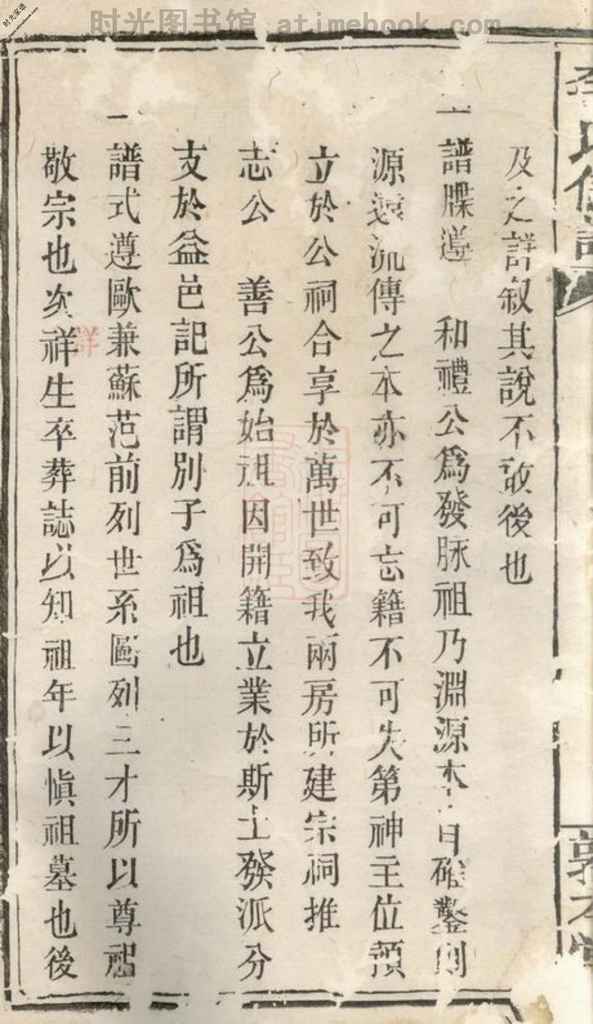 时光图书馆 - www.atimebook.com
及之詳叙其說不敢後也
一譜牒遵 和禮公為發脉祖乃淵源本 確鑿則
源遠流傳之本亦不可忘籍不可失第神主位預
立於公祠合享於萬世致我兩房所建宗祠推
志公 善公爲始祖因開籍立業於斯土發派分
支於益邑記所謂別子爲祖也
一譜式遵歐兼蘇范前列世系圖列三才所以尊祖
敬宗也次祥生卒葬誌以知祖年以愼祖墓也後
詳